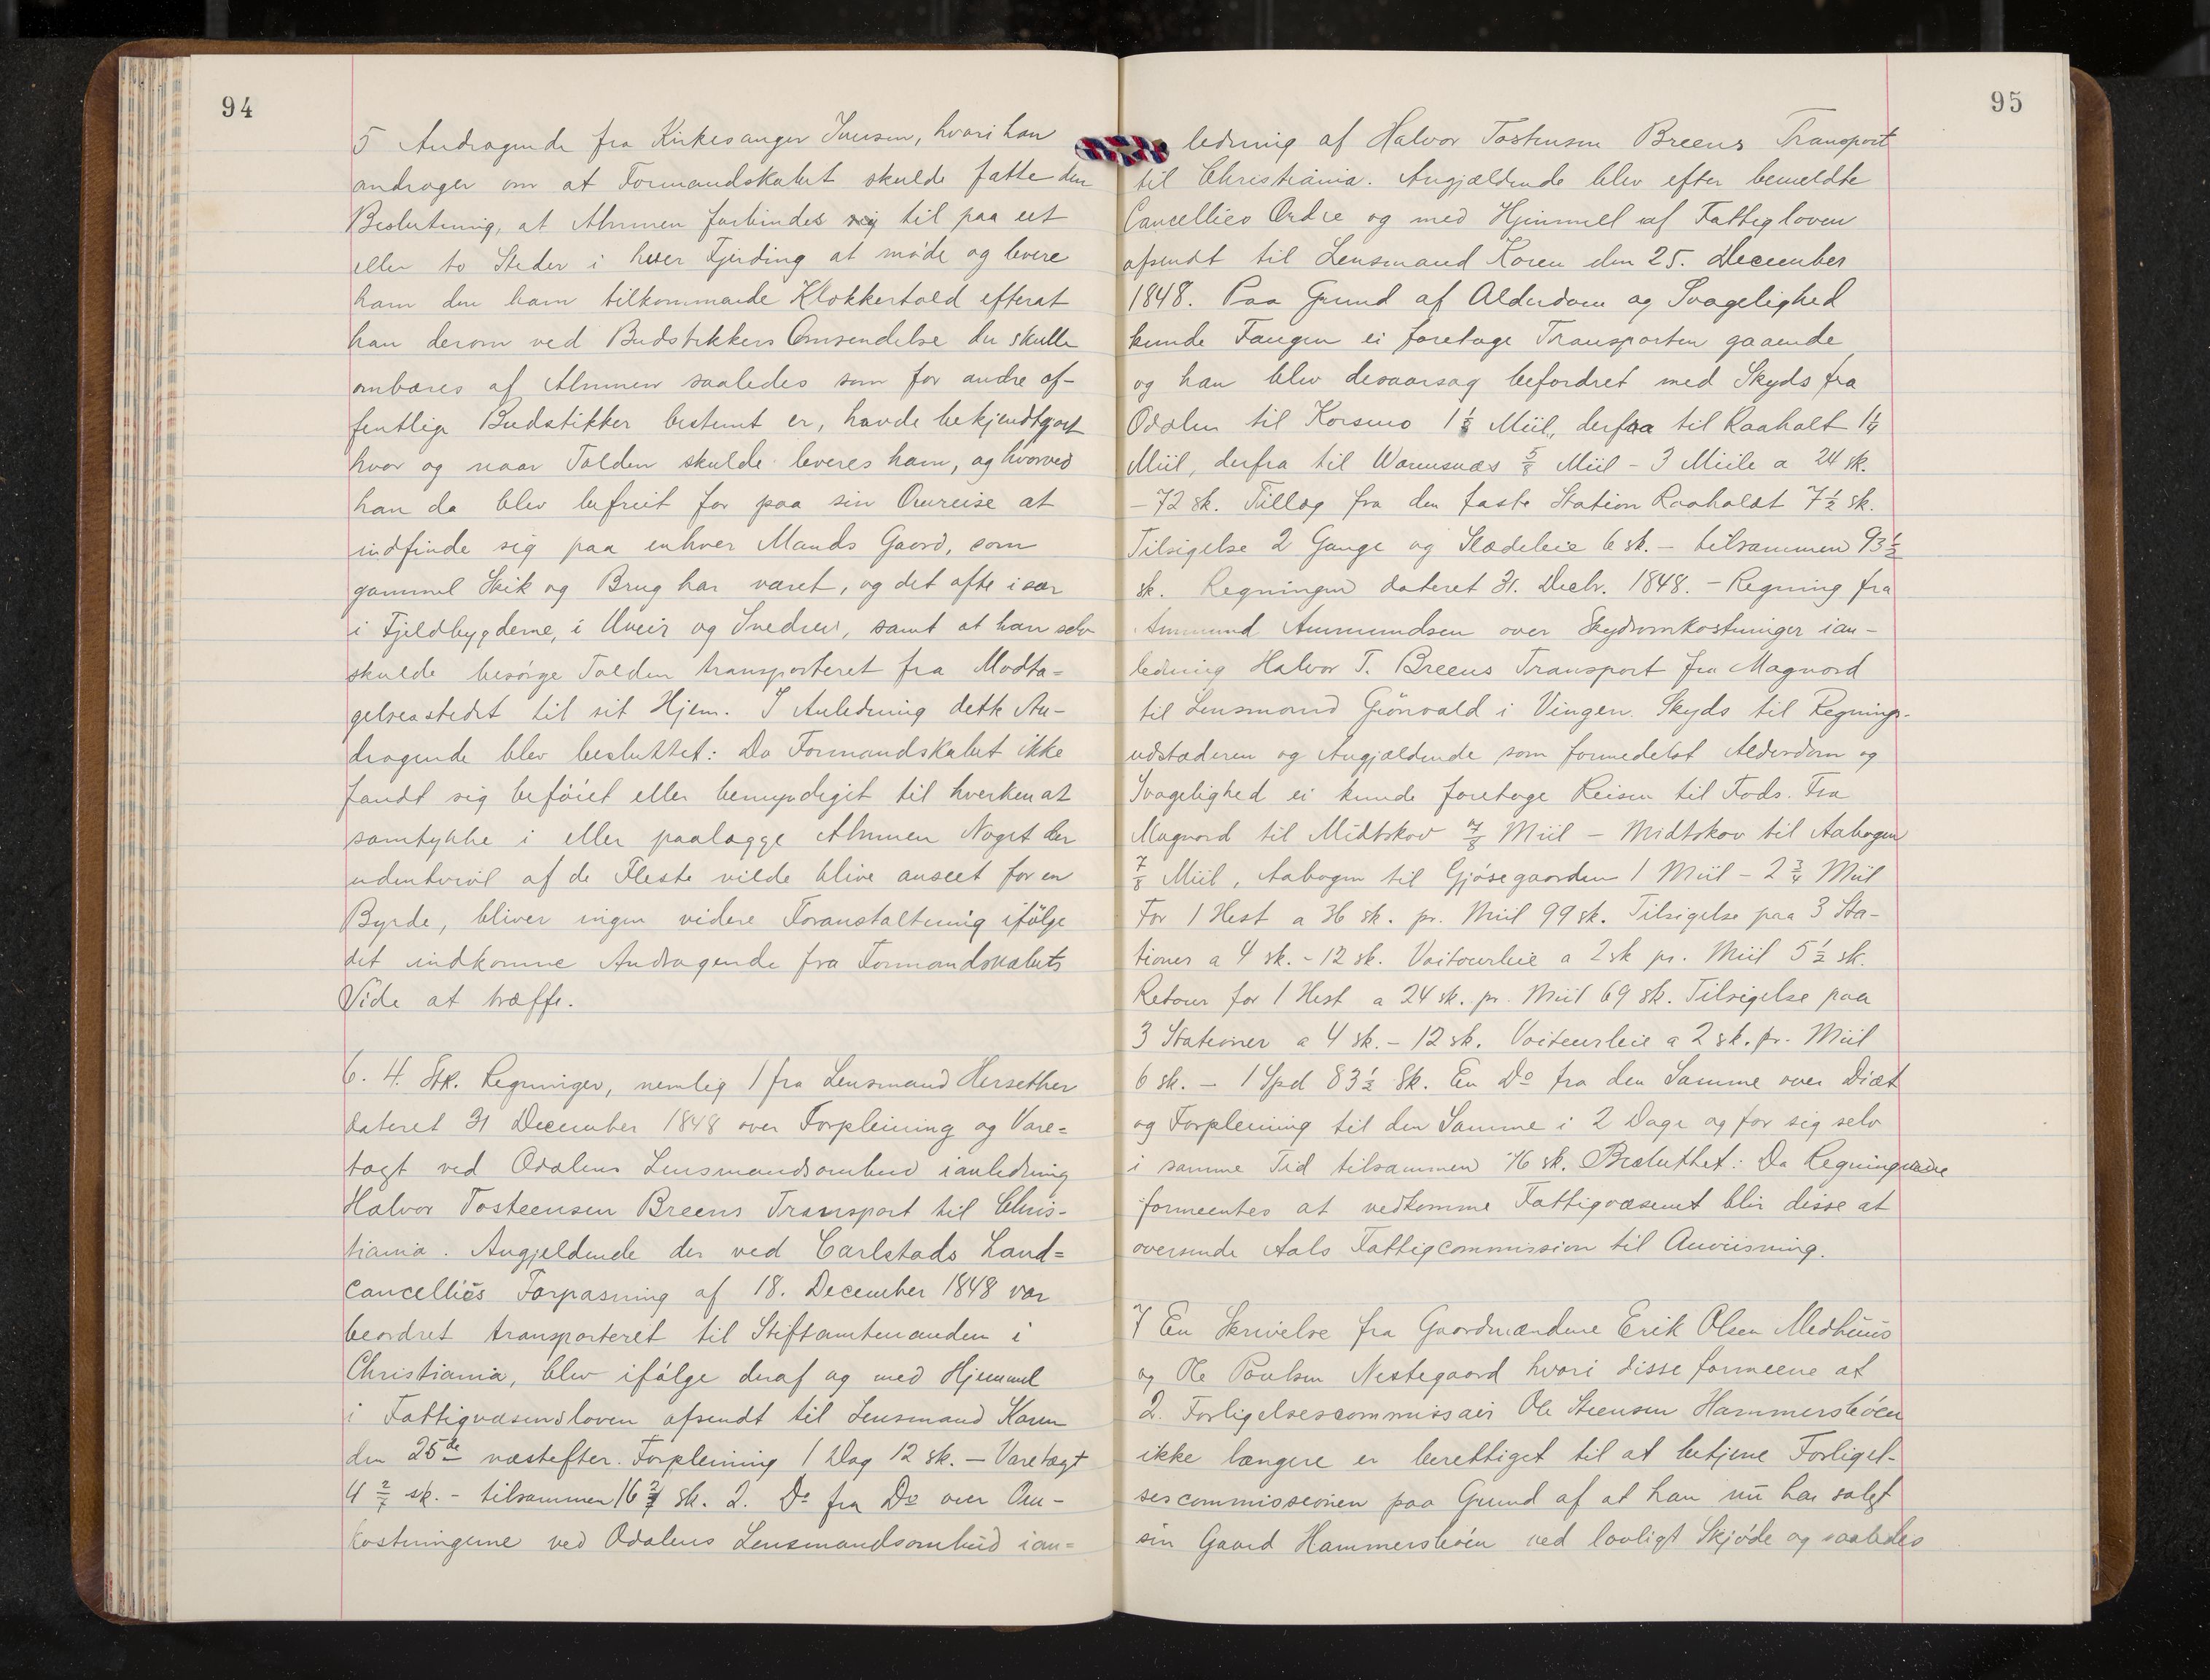 94
5 Andragende fra Kirkesanger Iversen, hvori han
andrager om at Formandskabet skulde fatte den
Beslutning, at Almuen forbindes sig til paa eet
eller to Steder i hver Fjerding at møde og levere
ham den ham tilkommende Klokkertold efterat
han derom ved Budstikkers Omsendelse der skulle
ombæres af Almuen saaledes som for andre of-
fentlige Budstikker bestemt er, havde bekjendtgjort
hvor og naar Tolden skulde leveres ham, og hvorved
han da blev befriet for paa sin Omreise at
indfinde sig paa enhver Mands Gaard, som
gammel Skik og Brug har været, og det ofte især
i Fjeldbygderne, i Uveir og Snedrev, samt at han selv
skulde besørge Tolden transporteret fra Modta=
gelsesstedet til sit Hjem. I Anledning dette An-
dragende blev besluttet: Da Formandskabet ikke
fandt sig beføiet eller bemyndiget til hverken at
samtykke i eller paalægge Almuen Noget der
udentvivl af de Fleste vilde blive anseet for en
Byrde, bliver ingen videre Foranstaltning ifølge
det indkomne Andragende fra Formandskabets
Side at træffe.
6. 4. Stk. Regninger, nemlig 1 fra Lensmand Hersether
dateret 31 December 1848 over Forpleining og Vare=
tægt ved Odalens Lensmandsombud ianledning
Halvor Tosteensen Breens Transport til Chris-
tiania. Angjeldende der ved Carlstads Land=
cancellies Forpasning af 18. December 1848 var
beordret transporteret til Stiftamtmanden i
Christiania, blev ifølge deraf og med Hjemmel
i Fattigvæsensloven afsendt til Lensmand Koren
den 25de næstefter. Forpleining 1 Dag 12 sk. – Varetægt
4 2/7 sk. - tilsammen 16 2/7 sk. 2. Do fra Do over Om-
kostningerne ved Odalens Lensmandsombud ian=
95
ledning af Halvor Tostensen Breens Transport
til Christiania. Angjældende blev efter bemeldte
Cancellies Ordre og med Hjemmell af Fattigloven
afsendt til Lensmand Koren den 25. December
1848. Paa Grund af Alderdom og Svagelighed
kunde Fangen ei foretage Transporten gaaende
og han blev desaarsag befordret med Skyds fra
Odalen til Korsmo 1 1/8 Miil, derfra til Raaholt 1 1/4
Miil, derfra til Wormsnæs 5/8 Miil – 3 Miile a 24 sk.
– 72 sk. Tillæg fra den faste Station Raaholdt 7 1/2 sk.
Tilsigelse 2 Gange og Slædeleie 6 sk. – tilsammen 93 1/2
sk. Regningen dateret 31. Decbr. 1848. – Regning fra
Ammund Ammundsen over Skydsomkostninger ian-
ledning Halvor T. Breens Transport fra Magnord
til Lensmand Grönvald i Vingen. Skyds til Regnings-
udstæderen og Angjældende som formedelst Alderdom og
Svagelighed ei kunde foretage Reisen til Fods. Fra
Magnord til Midtskov 7/8 Miil – Midtskov til Aabogen
7/8 Miil, Aabogen til Gjøsegaarden 1 Miil – 2 3/4 Miil
For 1 Hest a 36 sk. pr. Miil 99 sk. Tilsigelse paa 3 Sta-
tioner a 4 sk. – 12 sk. Voitourleie a 2 sk pr. Miil 5 1/2 sk.
Retour for 1 Hest a 24 sk. pr. Miil 69 sk. Tilsigelse paa
3 Stationer a 4 sk. – 12 sk. Voiteurleie a 2 sk. pr. Miil
6 sk. – 1 Spd 83 1/2 Sk. En Do fra den Samme over Diæt
og Forpleining til den Samme i 2 Dage og for sig selv
i samme Tid tilsammen 76 sk. Besluttet: Da Regningerne
formeentes at vedkomme Fattigvæsenet blir disse at
oversende Aals Fattigcommission til Anviisning.
7 En Skrivelse fra Gaardmændene Erik Olsen Medhuus
og Ole Poulsen Nestegaard hvori disse formeene at
2. Forligelsescommissair Ole Steensen Hammersbøen
ikke længere er berettiget til at betjene Forligel-
sescommissionen paa Grund af at han nu har solgt
sin Gaard Hammersbøen ved lovligt Skjøde og saaledes